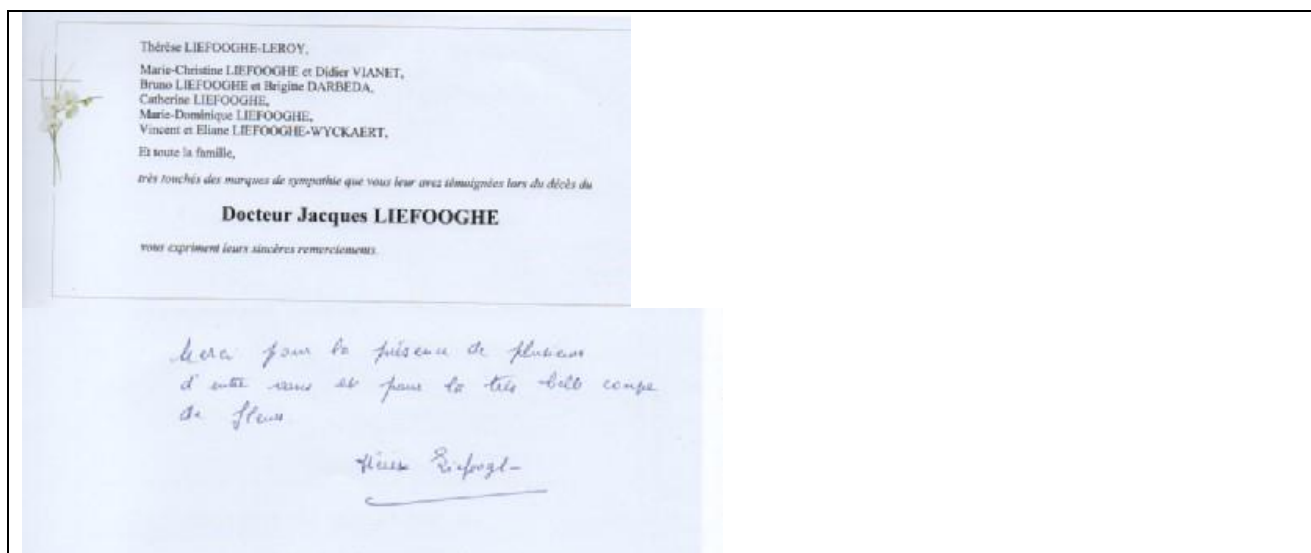 Thérèse LIEFOOGHE-LEROY,
Marie-Christine LIEFOOGHE et Didier VIANET,
Bruno LIEFOOGHE et Brigine DARBEDA,
Catherine LIEFOOGHE,
Marie-Dominique LIEFOOGHE,
Vincent et Eliane LIEFOOGHE-WYCKAERT,
Et toute la famille,
très touchés des marques de sympathie que vous leur avez témoignées lors du décès du
Docteur Jacques LIEFOOGHE
vous expriment leurs sincères remerciements.
Merci pour la présence de plusieurs
d'entre vous et pour la très belle coupe
de fleurs
Thérèse Liefooghe